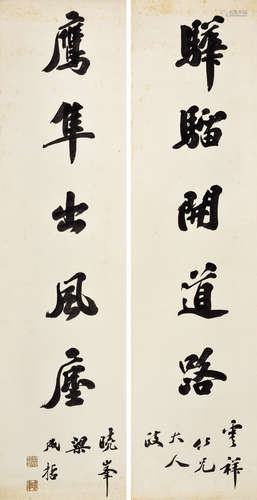 驊騮開道路
雲祥
仁兄
大人
政
鷹隼出風塵
曉峯
梁
成哲